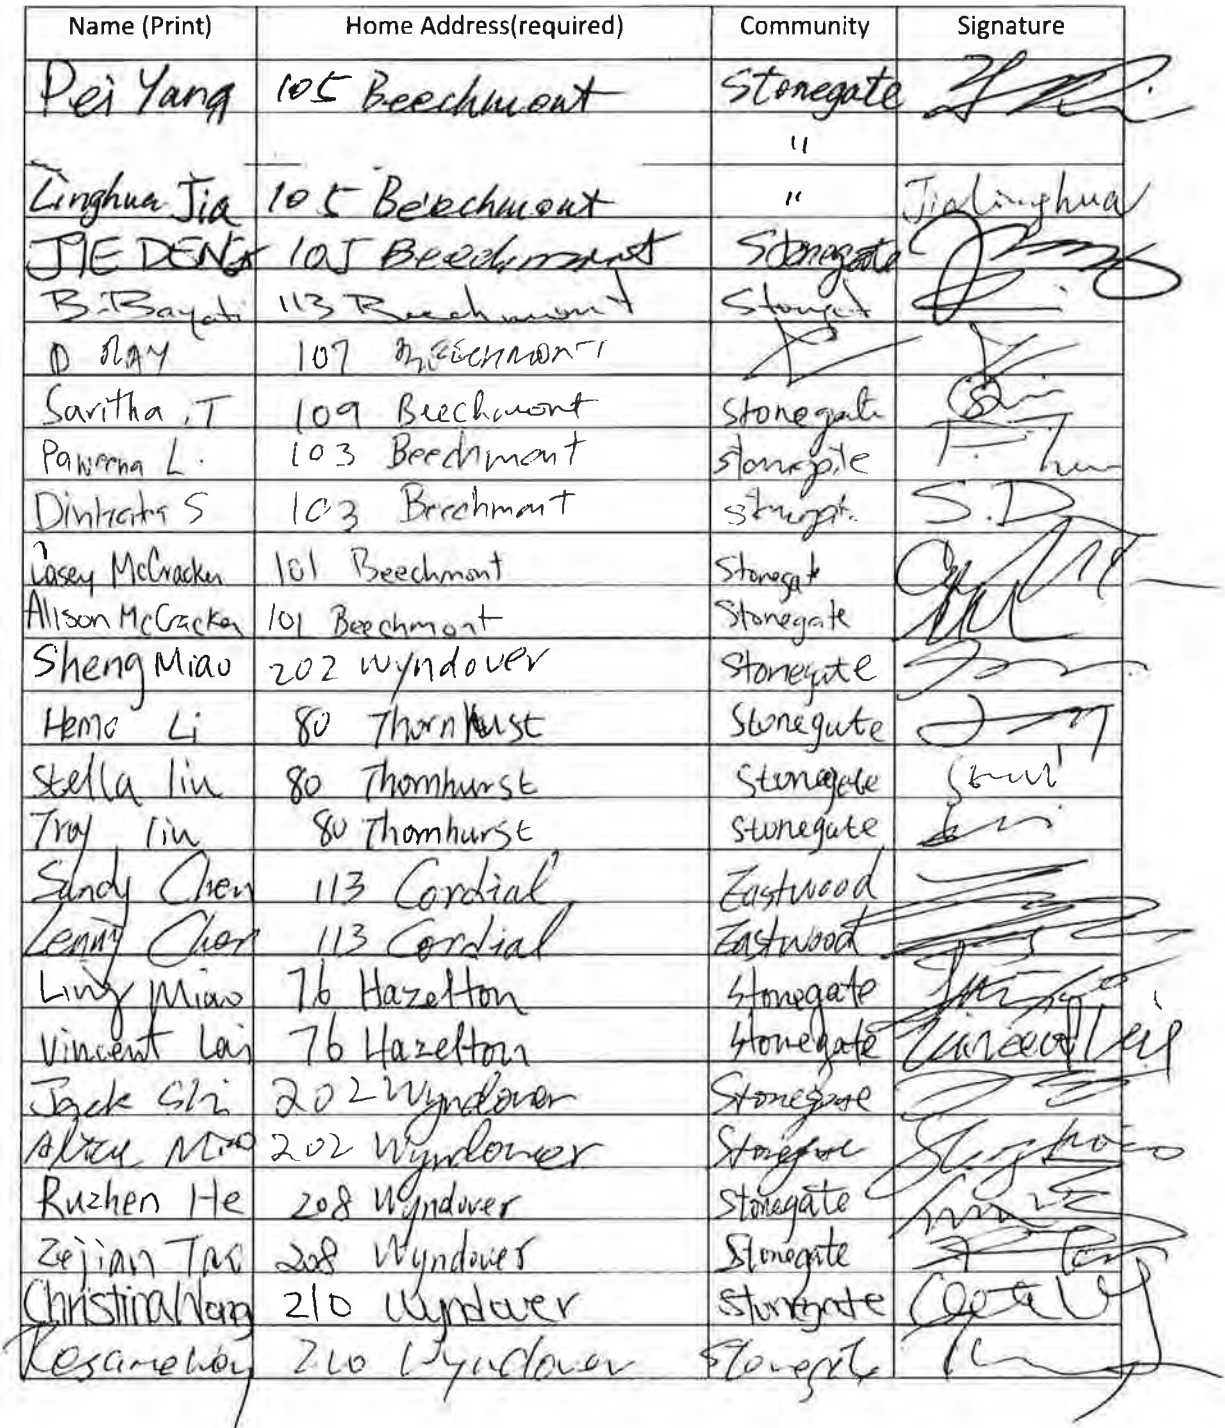 Name (Print) Home Address(required) Community Signature
Pei Yang 105 Beechmont Stonegate
"
Linghua Jia 105 Beechmont " Jialinghua
JIE DENG 105 Beechmont Stonegate
B. Bayati 113 Beechmont
D RAY 107 Beechmont
Saritha .T 109 Beechmont Stonegate
Paweena L. 103 Beechmont Stonegate
103 Beechmont
Casey McCracken 101 Beechmont Stonegate
Alison McCracken 101 Beechmont Stonegate
Sheng Miao 202 Wyndover Stonegate
Li 80 Thornhurst Stonegate
Stella liu 80 Thornhurst Stonegate
Troy liu 80 Thornhurst Stonegate
Sandy Chen 113 Cordial Eastwood
Lenny Chen 113 Cordial Eastwood
Ling Miao 76 Hazelton Stonegate
Vincent Lai 76 Hazelton Stonegate
Jack Shi 202 Wyndover Stonegate
Miao 202 Wyndover Stonegate
Ruzhen He 208 Wyndover Stonegate
Zejian Tao 208 Wyndover Stonegate
Christina Wong 210 Wyndover Stonegate
210 Wyndover Stonegate